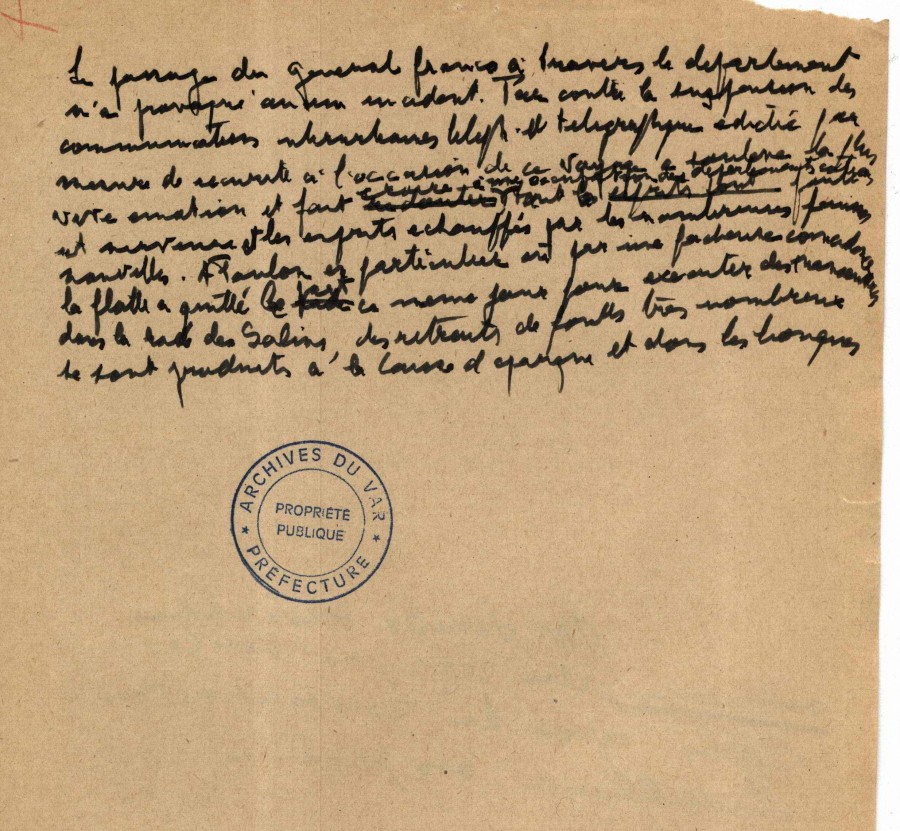 Le passage du general franco à travers le departement
n'a provoqué aucun incident. Par contre la suspension des
communications interurbaines téleph. et telegraphique édictée par
mesure de securité à l'occasion de ce voyage a soulevé la plus
vive emotion et fait croire à une occupation des departements cotiers
redouter tant les esprits sont
et nerveux et les esprits echauffés par les nombreuses fausses
nouvelles. A Toulon en particulier où par une facheuse coincidence
la flotte a quitté le port ce meme jour pour executer des manoeuvres
dans la rade des Salins, des retraits de fonds très nombreux
se sont produits à la Caisse d'epargne et dans les banques
ARCHIVES DU VAR
PROPRIÉTÉ
PUBLIQUE
* PRÉFECTURE *